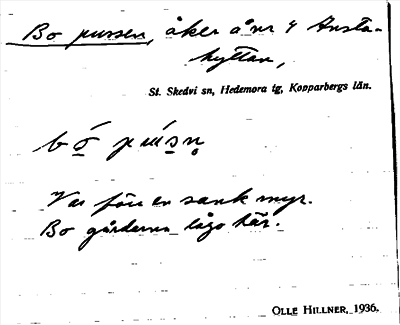 Bo pussen, åker å nr 4 Ansta-
hyttan,
St. Skedvi sn, Hedemora tg, Kopparbergs län.
bó̱ pẃs̱n̥
Var förr en sank myr.
Bo gårdarna lågo här.
OLLE HILLNER, 1936.